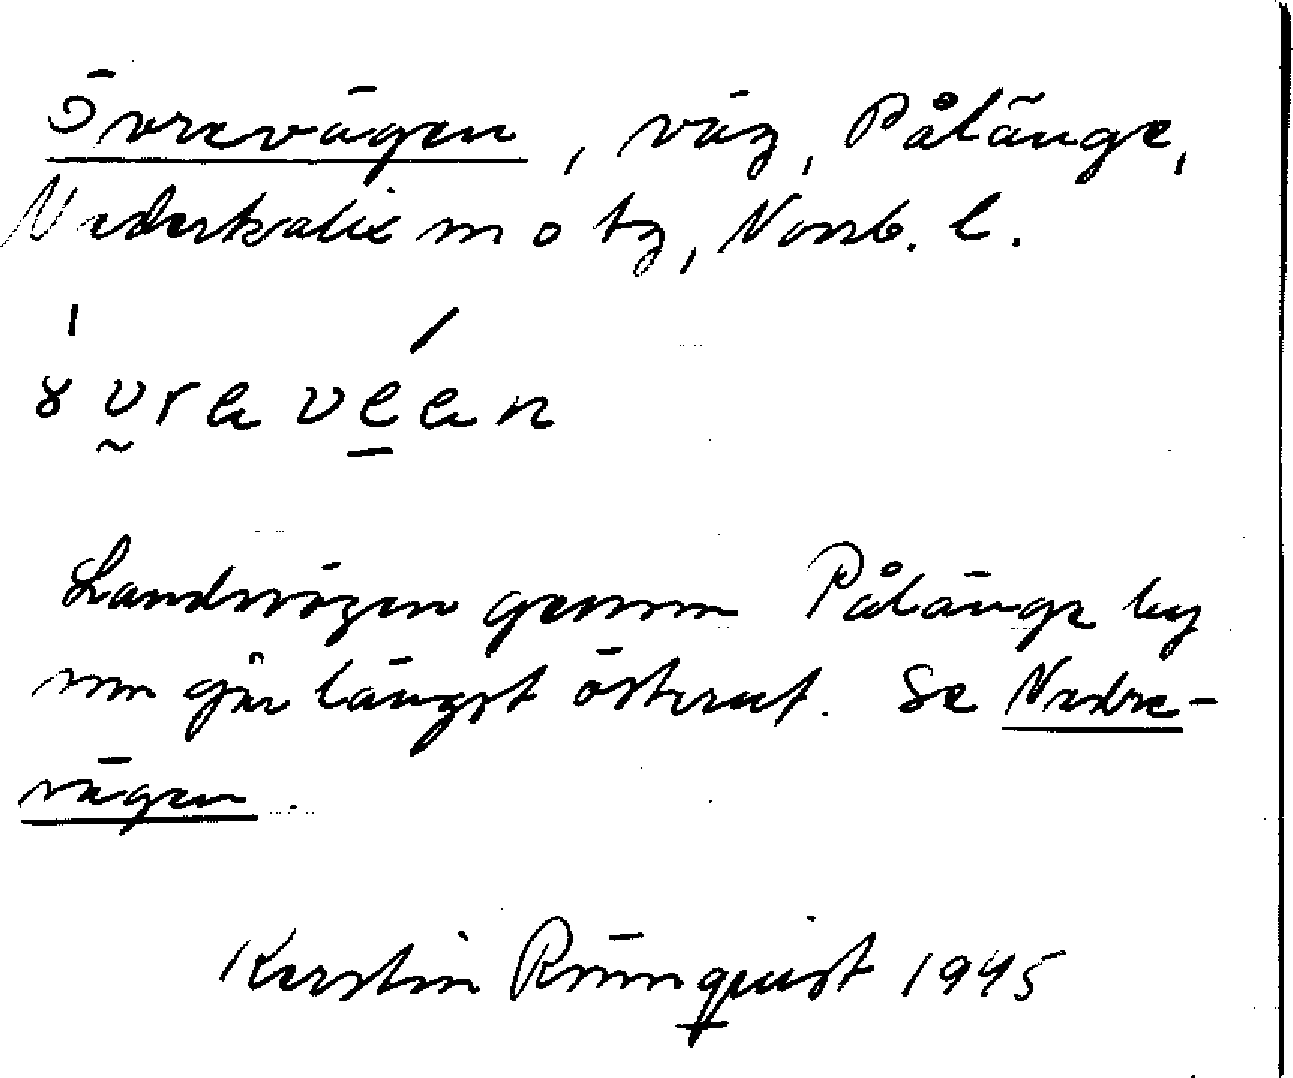 Övrevägen, väg, Pålänge,
Nederkalix sn o tg, Norrb. l.
Landsvägen genom Pålänge by
som går längst österut. Se Nedre-
vägen.
Kerstin Rönnquist 1945